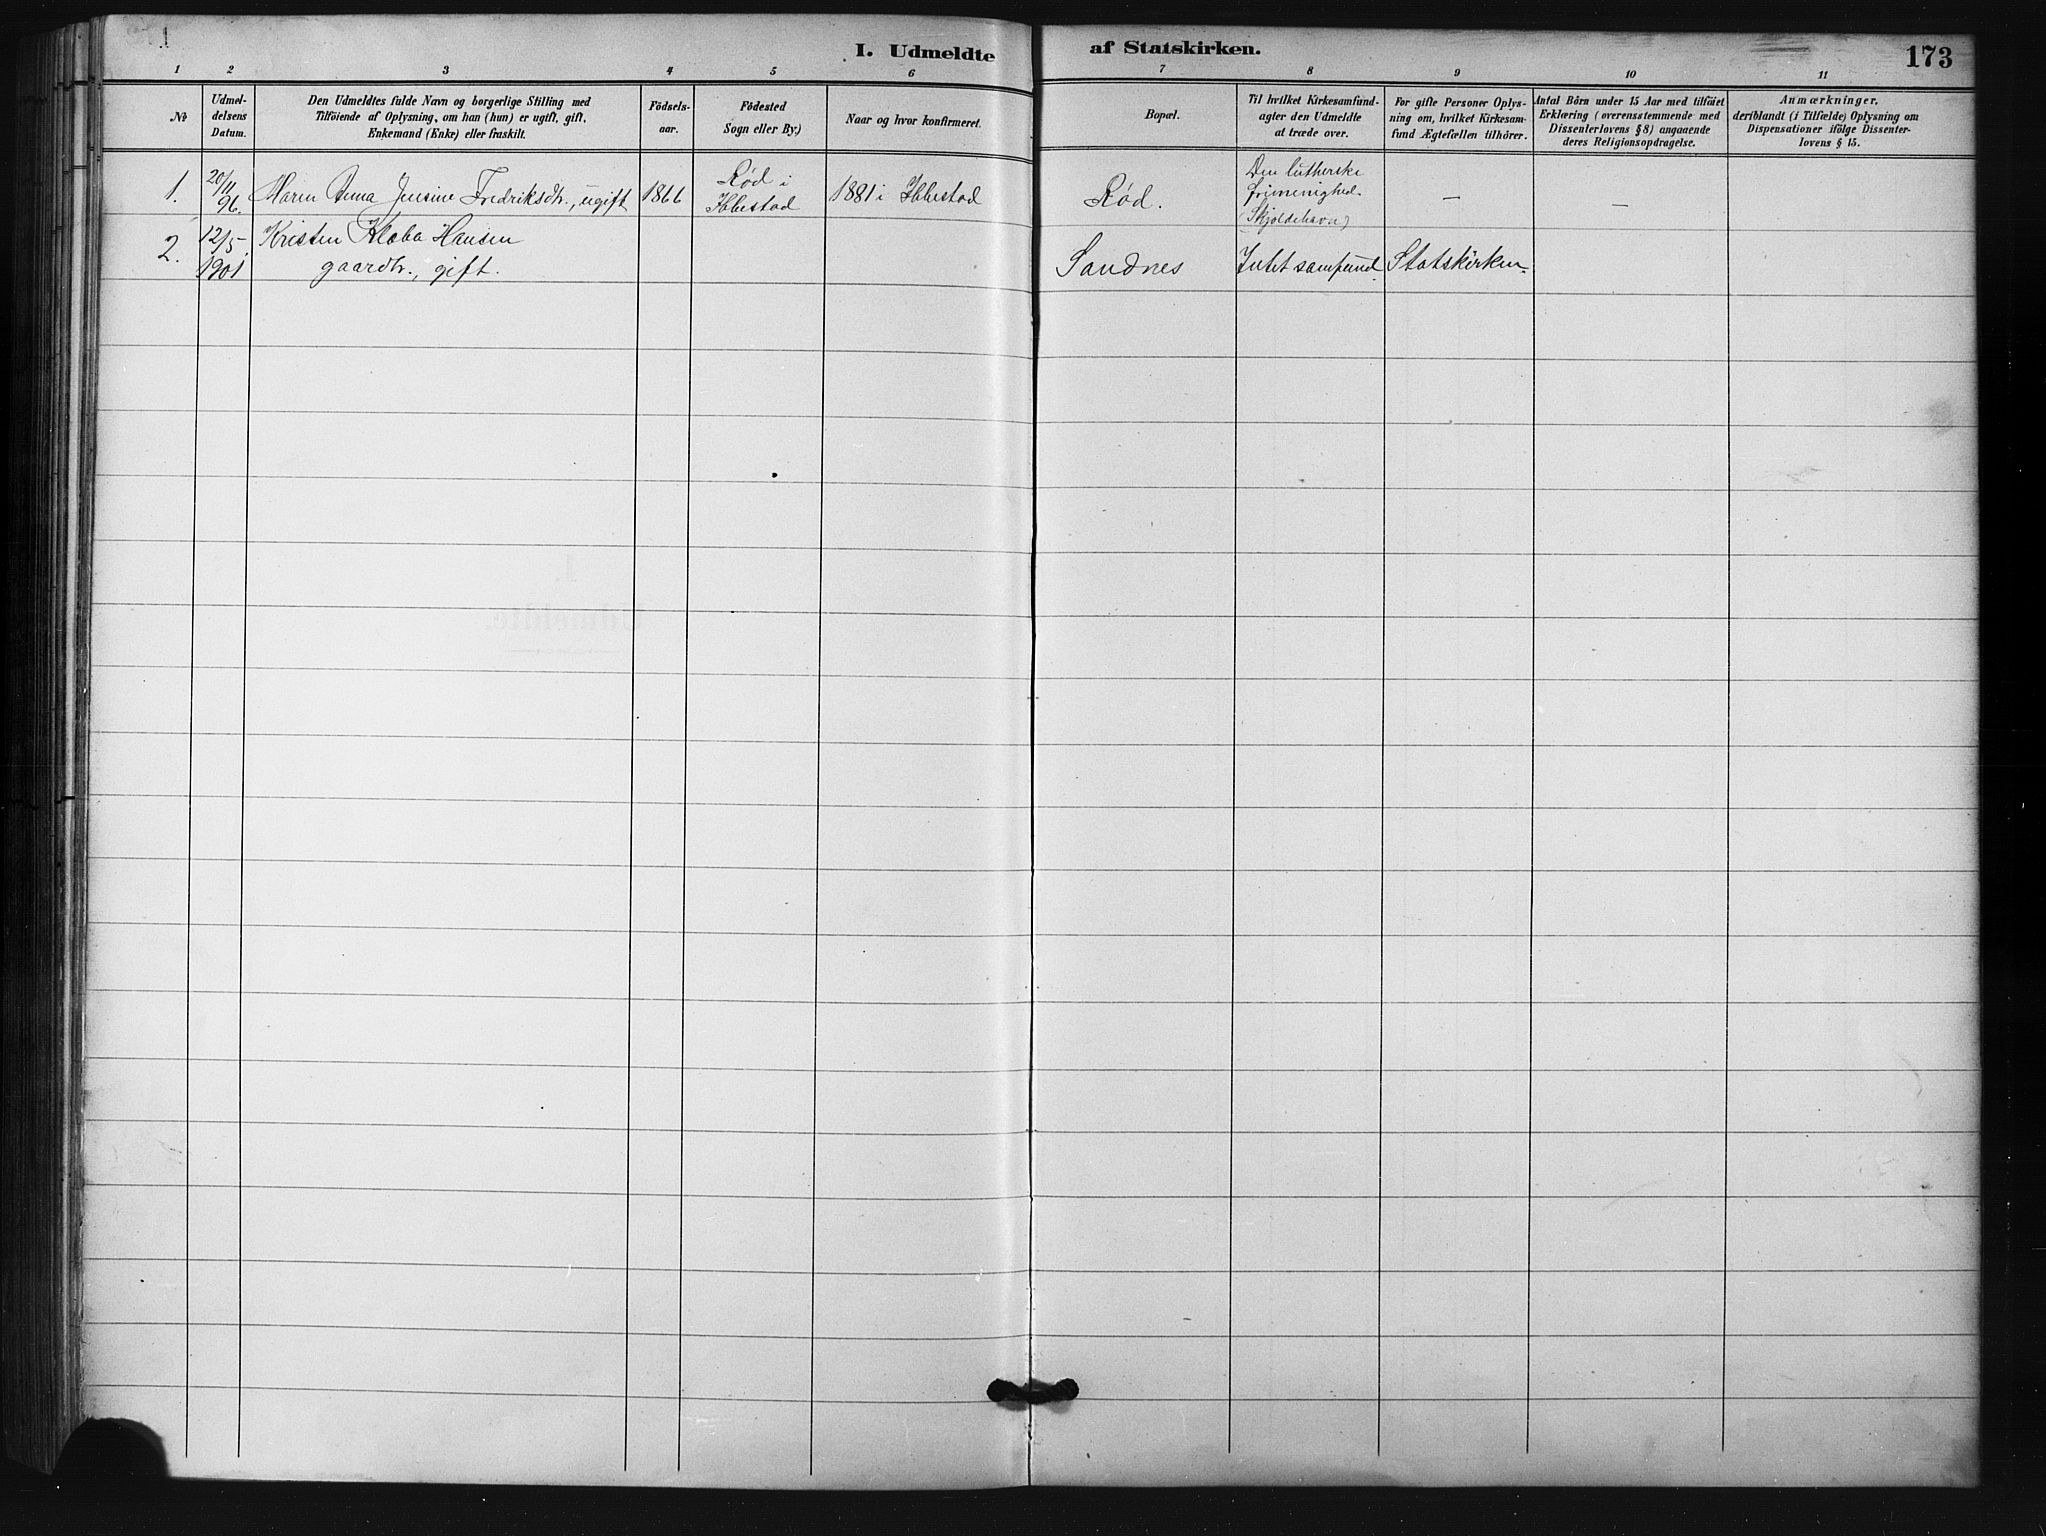 I. Udmeldte af Statskirken.
173
1 2 3 4 5 6 7 8 9 10 11
No
Udmel-
delsens
Datum.
Den Udmeldtes fulde Navn og borgerlige Stilling med
Tilföiende af Oplysning, om han (hun) er ugift, gift,
Enkemand (Enke) eller fraskilt.
Födsels-
aar.
Födested
Sogn eller By.)
Naar og hvor konfirmeret.
Bopæl.
Til hvilket Kirkesamfund-
agter den Udmeldte
at træde over.
For gifte Personer Oplys-
ning om, hvilket Kirkesam-
fund Ægtefællen tilhörer.
Antal Börn under 15 Aar med tilföiet
Erklæring (overensstemmende med
Dissenterlovens § 8) angaaende
deres Religionsopdragelse.
Anmærkninger,
deriblandt (i Tilfælde) Oplysning om
Dispensationer ifölge Dissenter-
lovens § 15.
1.
20/11
96.
Maren Anna Jensine Fredriksdtr., ugift
1866
Rød i
Ibbestad
1881 i Ibbestad
Rød.
Den lutherske
frimenighed
(Skjoldehavn)
—
—
2.
12/5
1901
Kristen Klæbo Hansen
gaardbr., gift.
Sandnes
Intet samfund
Statskirken.